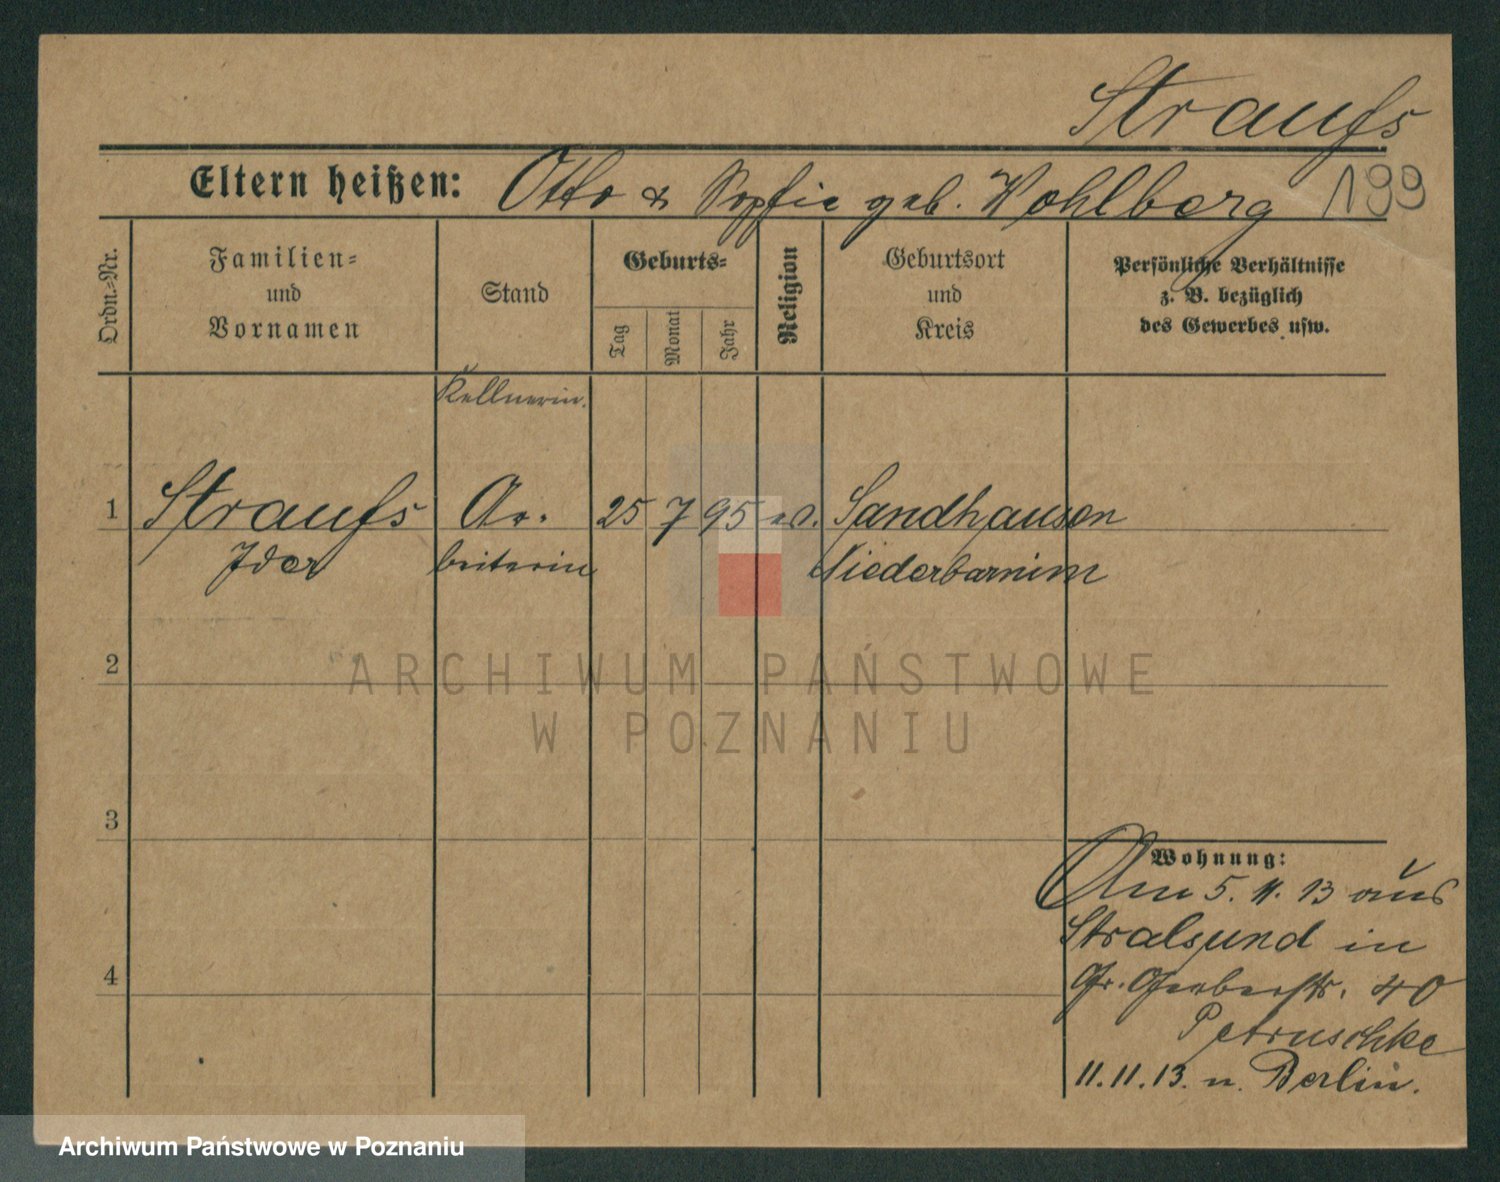 Strauſs
Eltern heißen: Otto & Sophie geb. Wohlberg 199
Ordn.-Nr.
Familien-
und
Vornamen
Stand
Geburts-
Tag
Monat
Jahr
Religion
Geburtsort
und
Kreis
Persönliche Verhältnisse
z. B. bezüglich
des Gewerbes usw.
Kellnerin.
1 Strauſs Ar- 25 7 95 ev. Sandhausen
beiterin Niederbarnim
2
3
4
ARCHIWUM PAŃSTWOWE
W POZNANIU
Wohnung:
Am 5. 11. 13 aus
Stralsund in
Gr. Gerberstr. 40
Petruschke
11. 11. 13. n. Berlin.
Archiwum Państwowe w Poznaniu